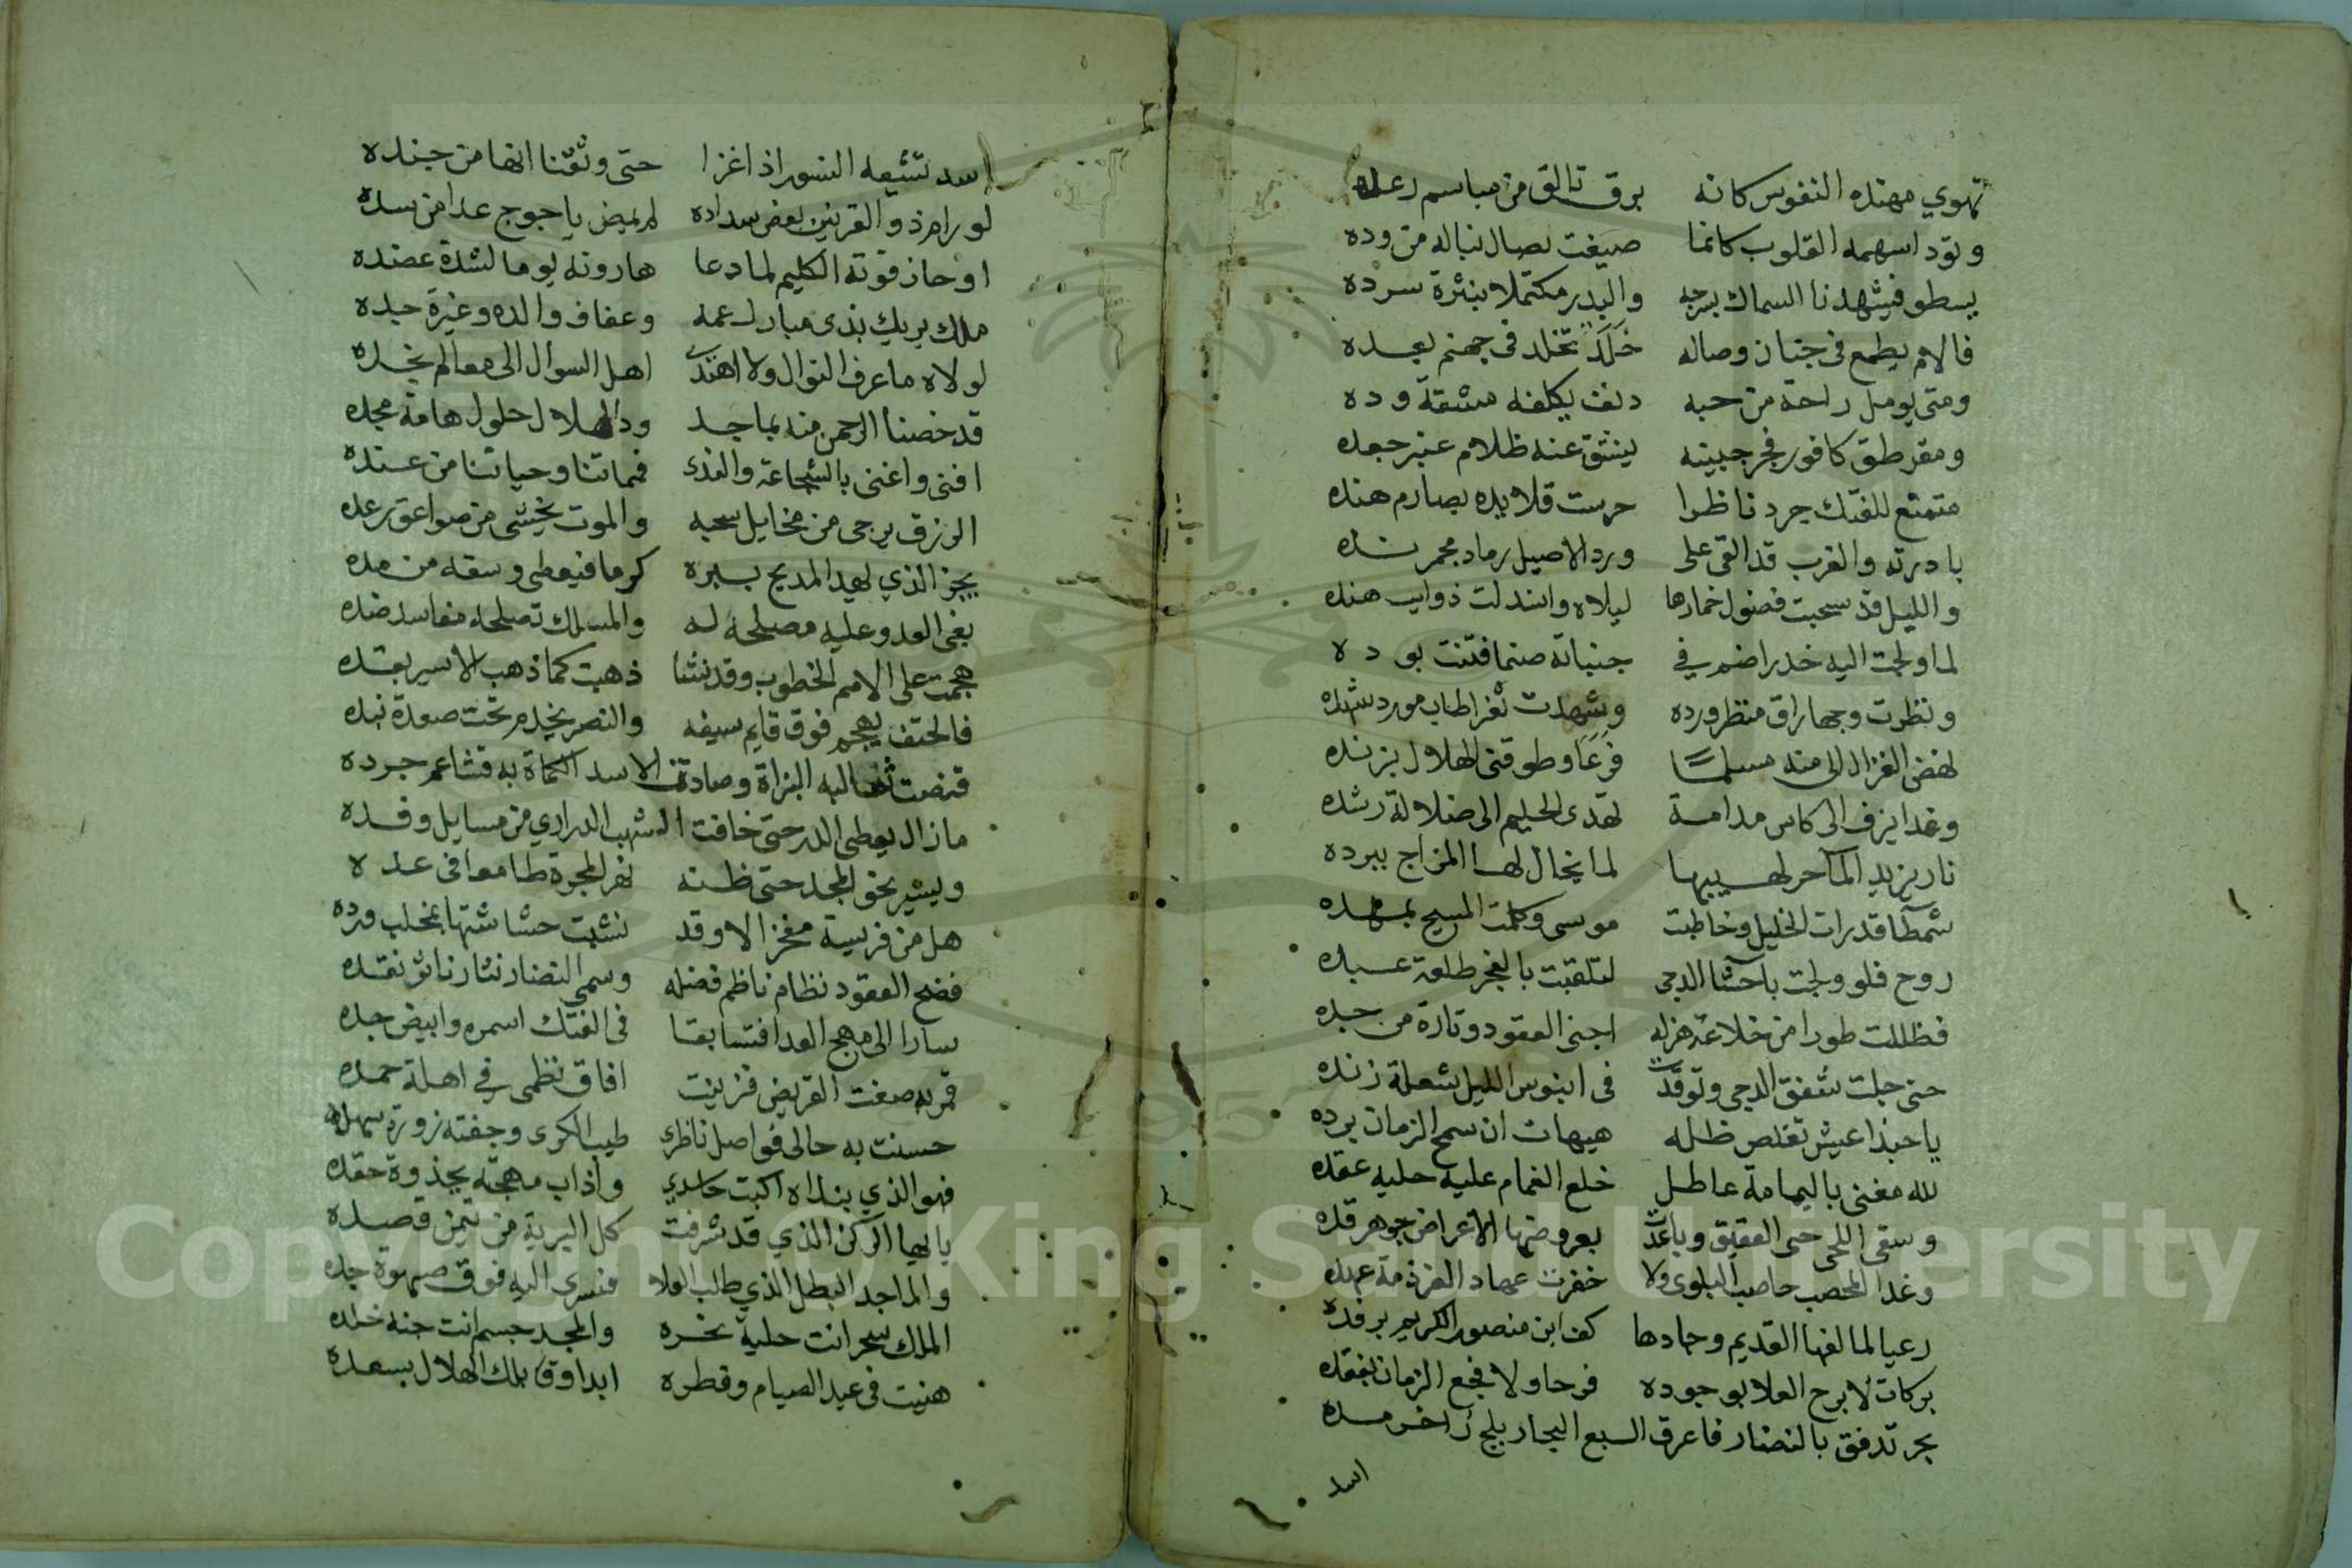 تهوي مهنده النفوس كانه برق تالق من مباسم رعده
وتود اسهمه القلوب كانما صيغت نصال نباله من وده
يسطو فيشهدنا السماك ببرجه والبدر مكتملا بنثرة سرده
فالام يطمع في جنان وصاله خلد تخلد في جهنم بعده
ومتى يومل راحة من حبه دنف يكلفه مشقة وده
ومقرطق كافور فجر جبينه ينشق عنه ظلام عنبر جعده
متمنع للفتك جرد ناظرا حرست قلايده بصارم هنده
بادرته والغرب قد القى على ورد الاصيل رماد مجمر نده
والليل قد سحبت فضول خمارها ليلاه وانسدلت ذوايب هنده
لما ولجت اليه خدرا ضم في جنباته صنما فتنت بوده
ونظرت وجها راق منظر ورده وشهدت ثغرا طاب مورد شهده
نهض الغزال الي منه مسلما فزعا وطوقني الهلال بزنده
وغدا يزف الى كاس مدامة تهدى الحليم الى ضلالة رشده
نار يزيد الماء حر لهيبها لما يخال لها المزاج ببرده
شمطآ قد رات الخليل وخاطبت موسى وكلمت المسيح بمهده
روح فلو ولجت باحشا الدجى لتلقبت بالفجر طلعة عبده
فظللت طورا من خلاعة هزله اجنى العقود وتارة من جده
حتى جلت شفق الدجى وتوقدت في ابنوس الليل شعلة زنده
يا حبذا عيش تقلص ظله هيهات ان سمح الزمان برده
لله مغنى باليمامة عاطل خلع الغمام عليه حليه عقده
وسقى اللحى حي العقيق وباعدت بعروضها الاعراض جوهر قده
وغدا المحصب حاصب البلوى ولا خفرت عهاد العز ذمة عهده
رعيا لمالفها القديم وجادها كف ابن منصور الكريم برفده
بركات لا برح العلا بوجوده فرحا ولا فجع الزمان بفقده
بحر تدفق بالنضار فاغرق السبع البحار بلج زاخر مده
اسد
اسد تشيعه النسور اذا غزا حتى وثقنا انها من جنده
لو رام ذو القرنين بعض سداده لم يمض ياجوج عدا من سده
او حاز قوته الكليم لما دعا هارونه يوما لشدة عضده
ملك يريك ندى مبارك عمه وعفاف والده وغيرة جده
لولاه ما عرف النوال ولا اهتدت اهل السوال الى معالم نجده
قد خصنا الرحمن منه بماجد ود الهلال حلول هامة مجده
افنى واغنى بالشجاعة والندى فمماتنا وحياتنا من عنده
الرزق يرجى من مخايل سحبه والموت يخشى من صواعق رعده
يجز الذي يهدى المديح ببره كرما فيعطى وسقه من مده
بغى العدو عليه مصلحة له والمسك تصلحه مفاسد ضده
هجمت على الامم الخطوب وقد نشا ذهبت كما ذهب الاسير بقده
فالحتف يهجم فوق قايم سيفه والنصر يخدم تحت صعدة بنده
قنصت ثعالبه البزاة وصادت الاسد الكماة به قشاعم جرده
ما زال يعطى الدر حتى خافت الشهب الدراري من مسايل وفده
ويسير نحو المجد حتى ظنه نهر المجرة طامعا في عده
هل من فريسة مفخر الا وقد نشبت حشاشتها بمخلب ورده
فضح العقود نظام ناظم فضله وسمى النضار نثار ناثر نقده
سارا الى مهج العدا فتسابقا في الفتك اسمره وابيض جده
قمر به صغت القريض فزينت افاق نظمى في اهلة حمده
حسنت به حالى فواصل ناظرى طيب الكرى وجفته زورة سهده
فهو الذي بنداه اكبت حاسدي واذاب مهجته بجذوة حقده
يا ايها الركن الذي قد شرفت كل البرية من تيمن قصده
والماجد البطل الذي طلب العلا فسرى اليه فوق صهوة جده
الملك سحر انت حلية نحره والمجد جسم انت جنة خلده
هنيت في عيد الصيام وفطره ابدا وقابلك الهلال بسعده
Copyright © King Saud University
1957